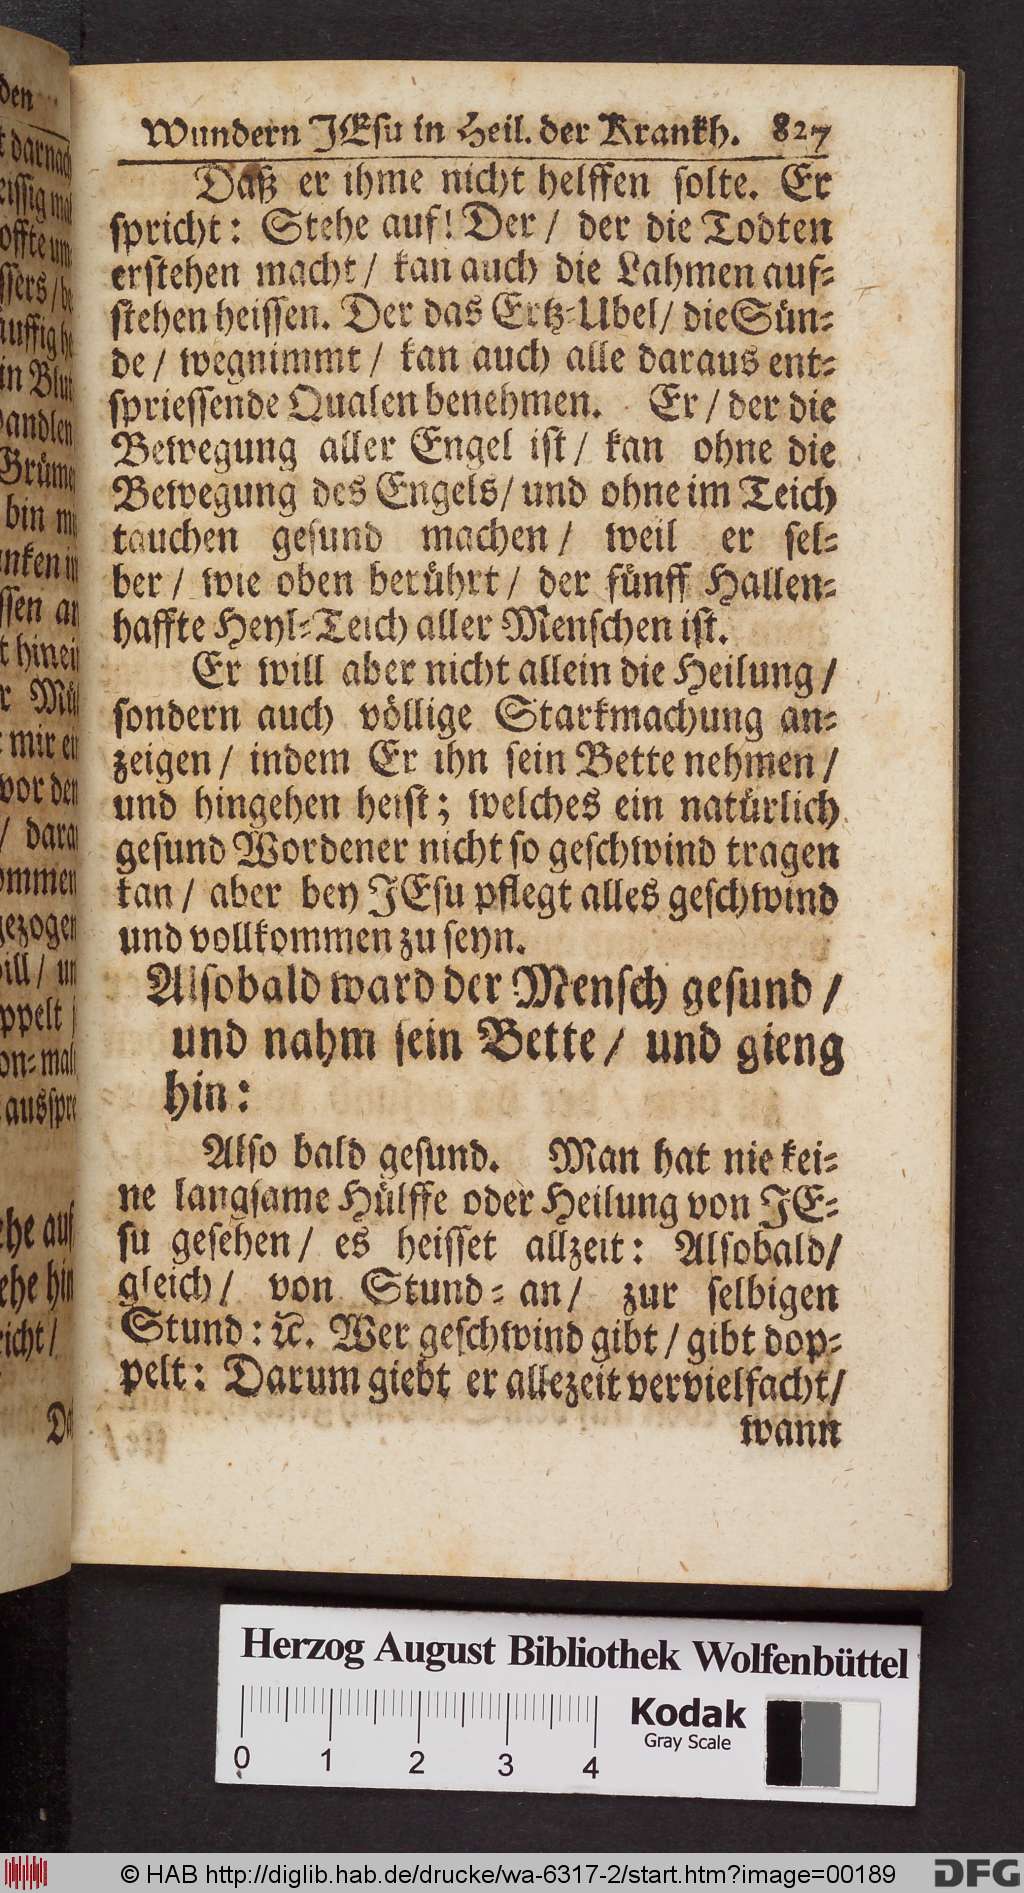 Wundern JEsu in Heil. der Krankh. 827
Daß er ihme nicht helffen solte. Er
spricht: Stehe auf! Der / der die Todten
erstehen macht / kan auch die Lahmen auf-
stehen heissen. Der das Ertz-Ubel / die Sün-
de / wegnimmt / kan auch alle daraus ent-
spriessende Qualen benehmen. Er / der die
Bewegung aller Engel ist / kan ohne die
Bewegung des Engels / und ohne im Teich
tauchen gesund machen / weil er sel-
ber / wie oben berührt / der fünff Hallen-
haffte Heyl-Teich aller Menschen ist.
Er will aber nicht allein die Heilung /
sondern auch völlige Starkmachung an-
zeigen / indem Er ihn sein Bette nehmen /
und hingehen heist; welches ein natürlich
gesund Wordener nicht so geschwind tragen
kan / aber bey JEsu pflegt alles geschwind
und vollkommen zu seyn.
Alsobald ward der Mensch gesund /
und nahm sein Bette / und gieng
hin:
Also bald gesund. Man hat nie kei-
ne langsame Hülffe oder Heilung von JE-
su gesehen / es heisset allzeit: Alsobald /
gleich / von Stund-an / zur selbigen
Stund: ꝛc. Wer geschwind gibt / gibt dop-
pelt: Darum giebt er allezeit vervielfacht /
wann
den
darnach
bin
vor den
ehe auf
ehe hin
Herzog August Bibliothek Wolfenbüttel
Kodak
Gray Scale
0 1 2 3 4
© HAB http://diglib.hab.de/drucke/wa-6317-2/start.htm?image=00189
DFG